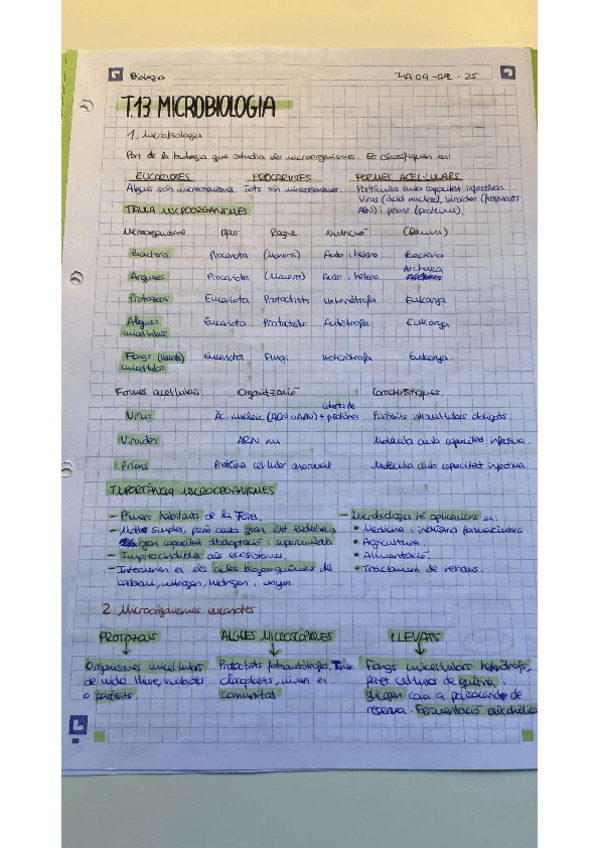 Biologia
T.13 MICROBIOLOGIA
1. Microbiologia
Part de la biologia que estudia els microorganismes. Es classifiquen en:
EUCARIOTES PROCARIOTES FORMES ACEL·LULARS
Algus són microorganismes. Tots són microorganismes. Partícules amb capacitat infectiva.
Virus (àcid nucleic), viroides (fragments
ARN) i prions (proteïnes).
TAULA MICROORGANISMES
Microorganisme Tipus Regne Nutrició (Domini)
Bacteris Procariota (Monera) Auto i hetero Bacteria
Arqueas Procariota (Monera) Auto i hetero Archaea
Protozous Eucariota Protoctists Heteròtrofa Eukarya
Algues Eucariota Protoctists Autòtrofa Eukarya
unicel·lulars
Fongs (llevats) Eucariota Fungi Heteròtrofa Eukarya.
unicel·lulars
Formes acel·lulars Organització Característiques
coberta de
Virus Ac. nucleic (ADN o ARN) + proteïnes Paràsits intracel·lulars obligats.
Viroides ARN nu Molècula amb capacitat infectiva
Prions Proteïna cel·lular anormal Molècula amb capacitat infectiva
IMPORTÀNCIA MICROORGANISMES
- Primers habitants de la Terra.
- Molt simples, però amb gran èxit evolutiu,
gran capacitat d'adaptació i supervivència
- Imprescindibles als ecosistemes.
- Intervenen en els cicles biogeoquímics del
carboni, nitrogen, hidrogen i oxigen.
- Microbiologia té aplicacions en:
• Medicina i indústria farmacèutica.
• Agricultura.
• Alimentació.
• Tractament de residus.
2. Microorganismes eucariotes
PROTOZOUS ALGUES MICROSCÒPIQUES LLEVATS
Organismes unicel·lulars Protoctists fotoautòtrofs. Tenen Fongs unicel·lulars heteròtrofs,
de vida lliure, simbionts cloroplasts, viuen en paret cel·lular de quitina i
o paràsits. comunitat glicogen com a polisacàrid de
reserva. Fermentació alcohòlica